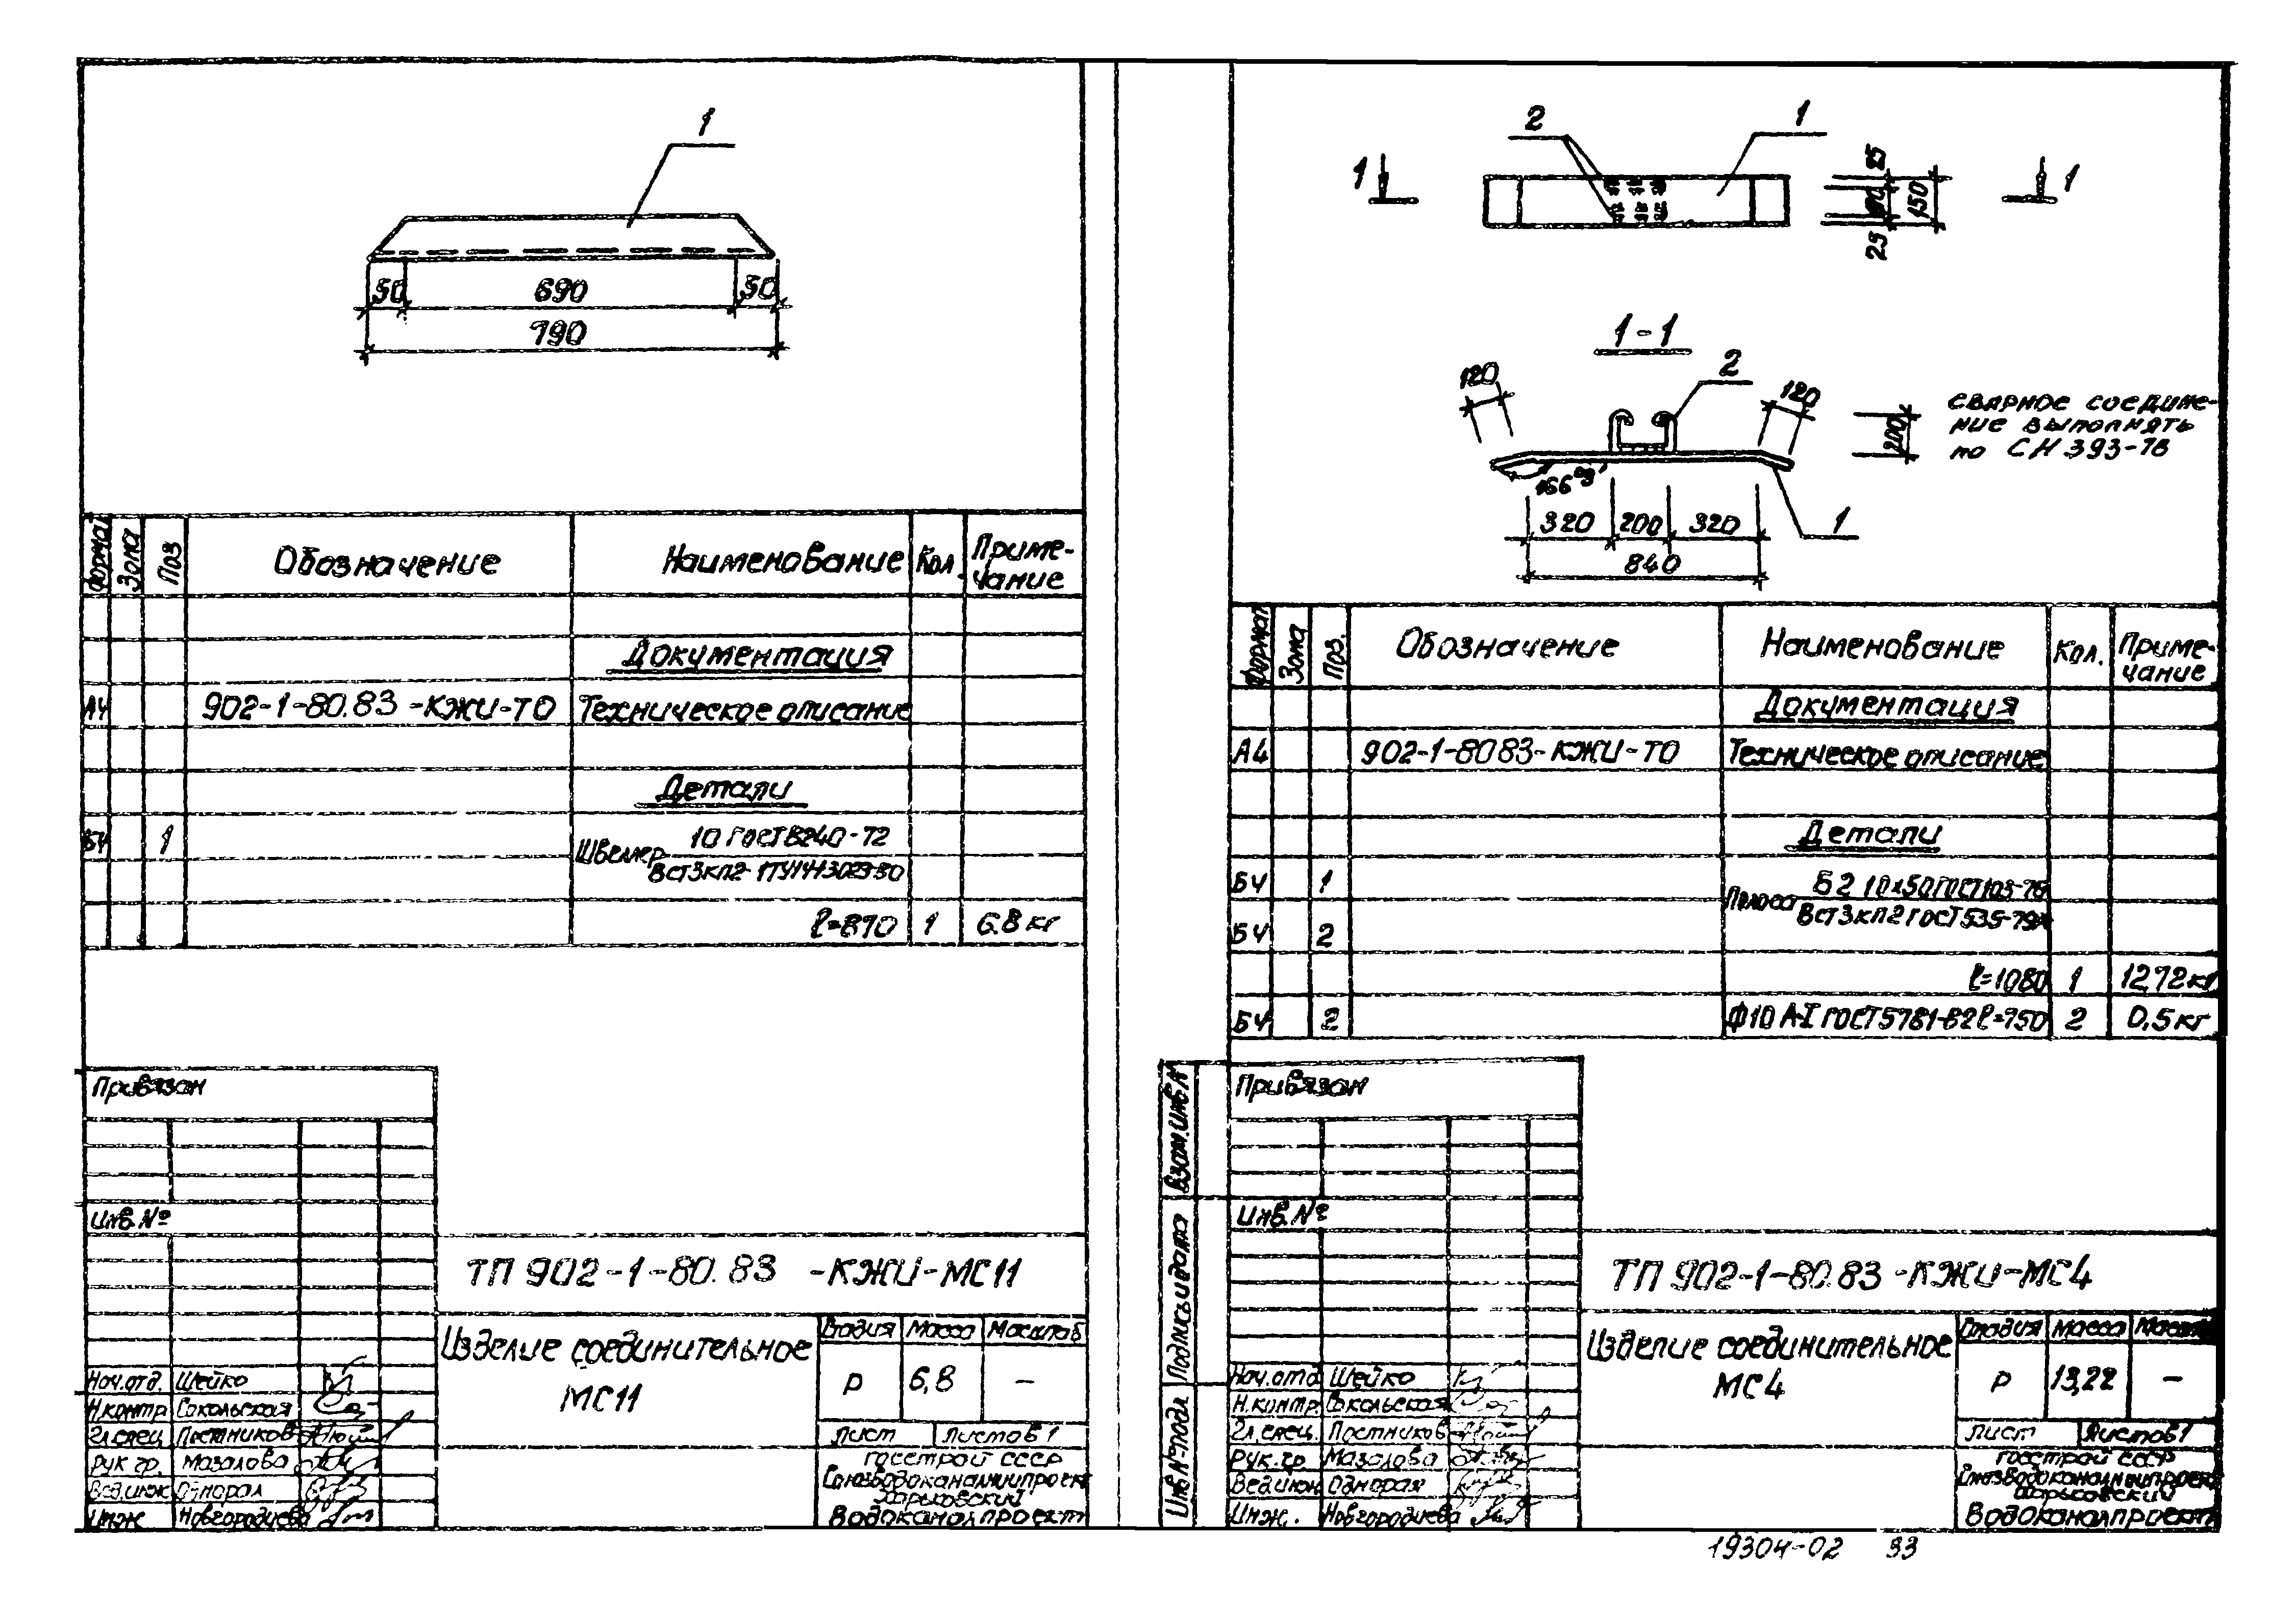 1
50
690
50
790
Формат
Зона
Поз
Обозначение
Наименование
Кол.
Приме-
чание
Документация
А4
902-1-80.83-КЖИ-ТО
Техническое описание
Детали
БЧ
1
Швеллер
10 ГОСТ 8240-72
ℓ=890
1
6.8 кг
Привязан
Инв.№
ТП 902-1-80.83 -КЖИ-МС11
Изделие соединительное
МС11
Стадия
Масса
Масштаб
Р
6,8
—
Лист
Листов 1
Госстрой СССР
Союзводоканалниипроект
Харьковский
Водоканалпроект
Нач.отд. Шейко
Н.контр Сокольская
Гл.спец. Постников
Рук.гр. Мазалова
Вед.инж Однорал
Инж Новгородцева
2
1
1
1
25
150
25
1-1
2
120
120
200
сварное соедине-
ние выполнять
по СН 393-78
166°
320
200
320
840
1
Формат
Зона
Поз.
Обозначение
Наименование
Кол.
Приме-
чание
Документация
А4
902-1-80 83-КЖИ-ТО
Техническое описание
Детали
БЧ
1
Полоса
ВСт3кп2 ГОСТ 535-79
БЧ
2
ℓ=1080
1
12,72 кг
БЧ
2
Ф10 А-I ГОСТ 5781-82 ℓ=750
2
0,5 кг
Взам.инв.№
Подпись и дата
Инв.№ подл
Привязан
Инв.№
ТП 902-1-80.83-КЖИ-МС4
Изделие соединительное
МС4
Стадия
Масса
Р
13,22
—
Лист
Листов 1
Госстрой СССР
Союзводоканалниипроект
Харьковский
Водоканалпроект
Нач.отд Шейко
Н.контр. Сокольская
Гл.спец. Постников
Рук.гр. Мазалова
Вед.инж Однорал
Инж. Новгородцева
19304-02 33